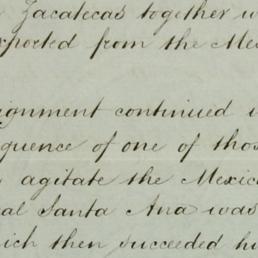 Zacatecas together w
xported from the Mex
ignment continued i
quence of one of thos
agitate the Mexic
al Santa Ana was
hich then succeeded hi